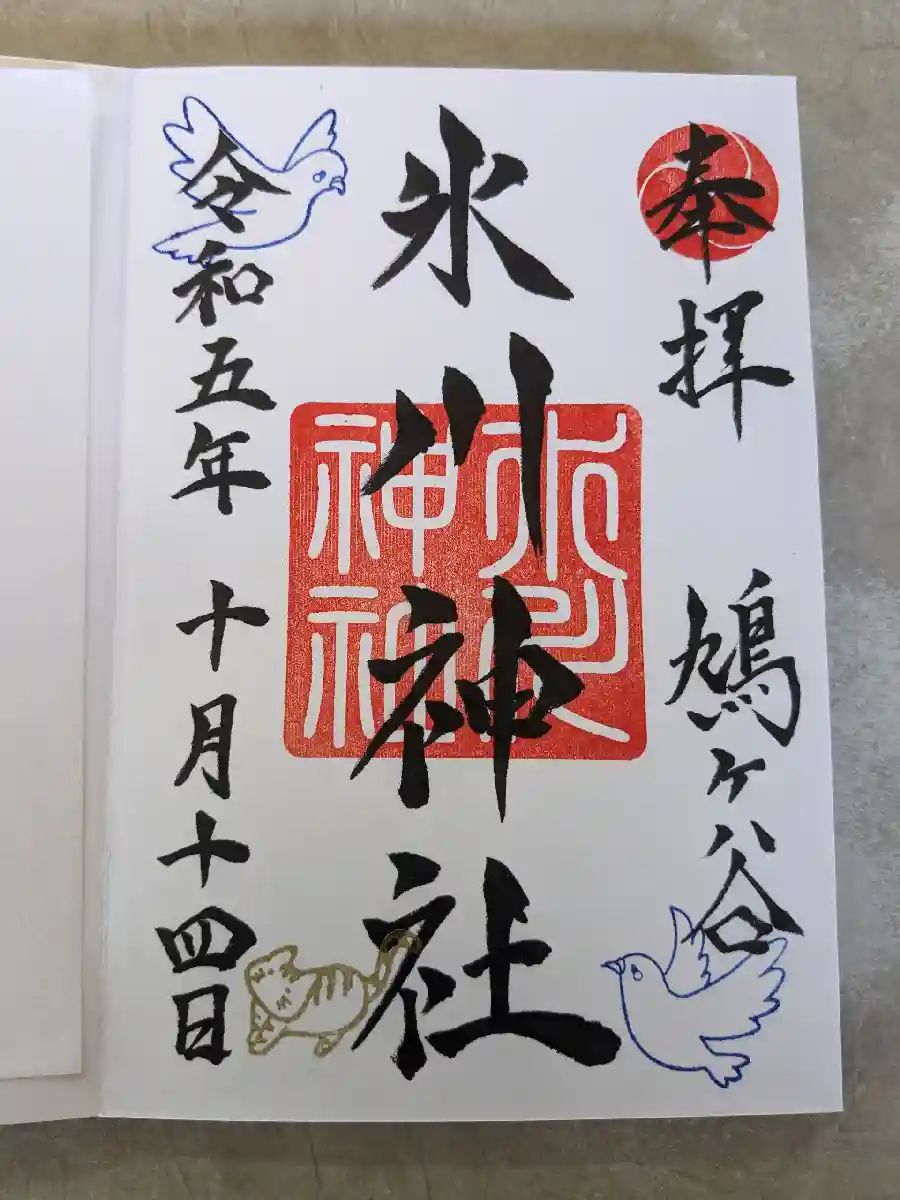 奉拝 鳩ヶ谷
氷川神社
氷川神社
令和五年 十月十四日